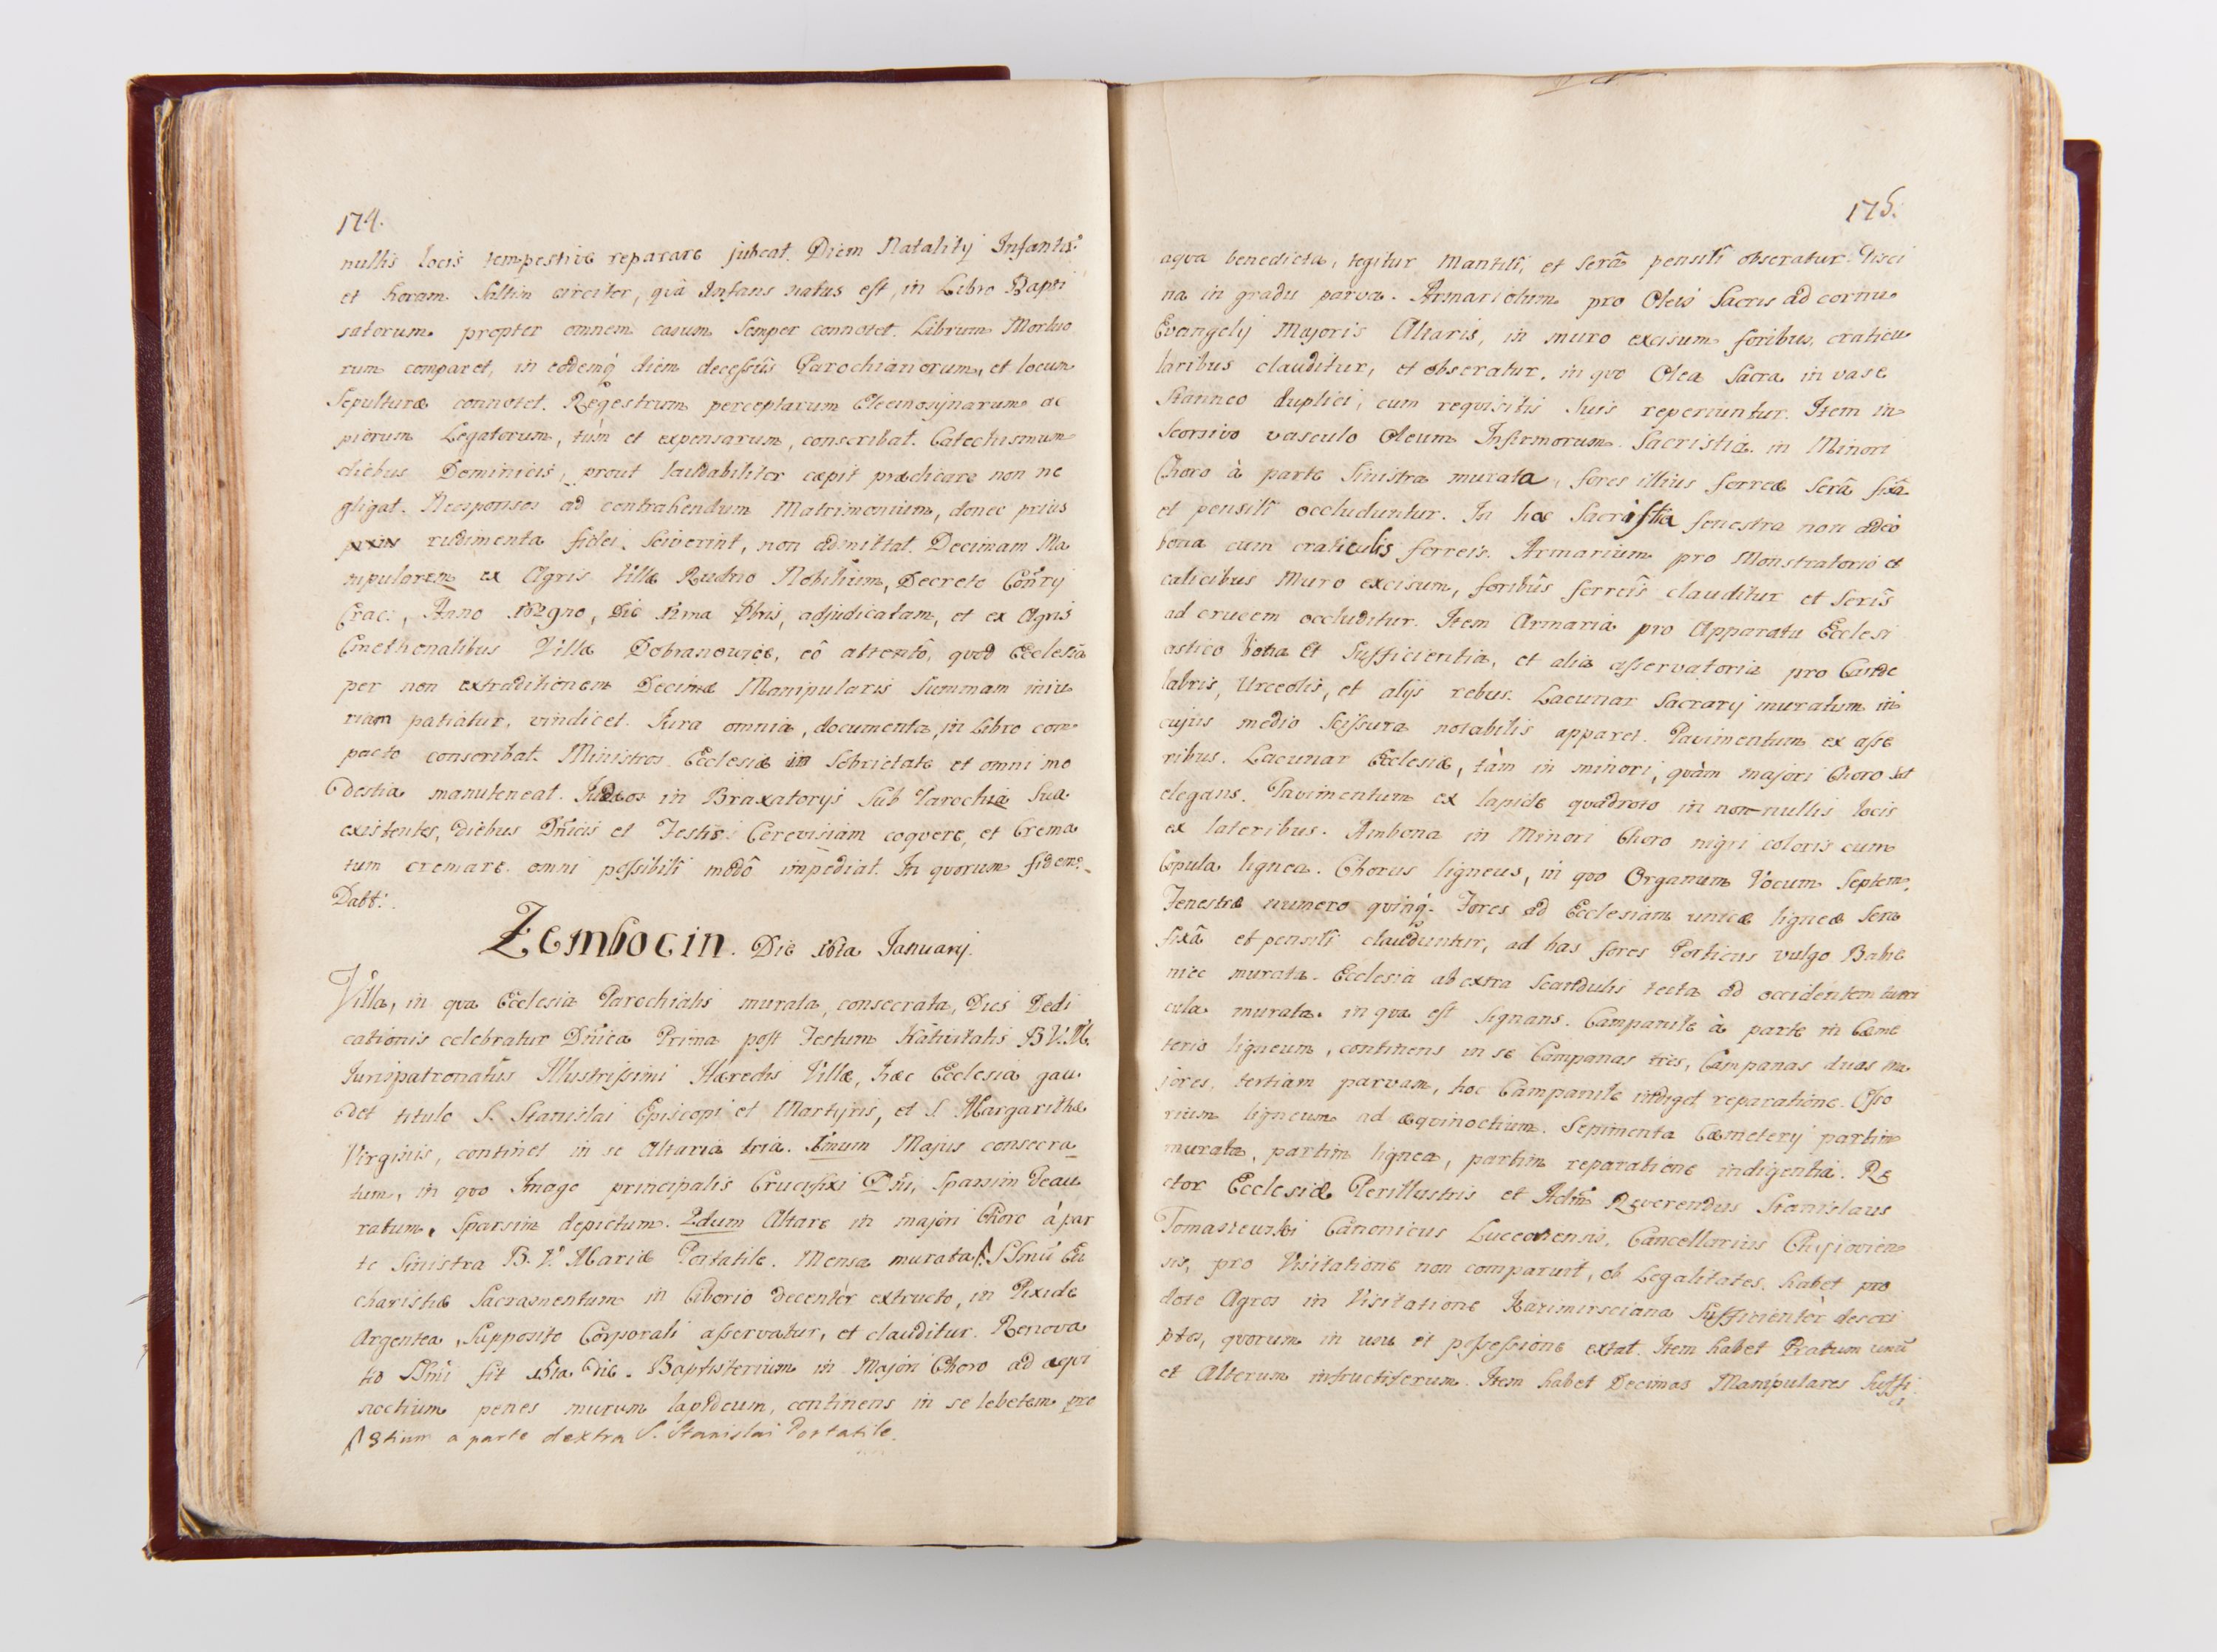 174.
nullis locis tempestive reparare jubeat. Diem Natalitij Infantis
et horam saltim circiter, quâ Infans natus est, in Libro Bapti
satorum propter omnem casum semper connotet. Librum Mortuo
rum comparet, in eodemq́ diem decessûs Parochianorum, et locum
Sepulturæ connotet. Regestrum perceptarum Eleemosynarum ac
piorum Legatorum, tùm et expensarum, conscribat. Catechismum
diebus Dominicis, prout laudabiliter cæpit prædicare non ne
gligat. Neosponsos ad contrahendum Matrimonium, donec prius
rudimenta fidei sciverint, non admittat. Decimam Ma
nipularem ex Agris Villæ Rudno Nobilium, Decreto Con̄rij
Crac:, Anno 1629no, Die 12ma Xbris, adjudicatam, et ex Agris
Cmethonalibus Villæ Dobranowice, eô attentô, quod Ecclesia
per non extraditionem Decimæ Manipularis summam iniu
riam patiatur, vindicet. Jura omnia, documenta, in Libro com
pacto conscribat. Ministros Ecclesiæ in Sobrietate et omni mo
destia manuteneat. Judæos in Braxatorijs sub Parochia sua
existentes, diebus Dn̄icis et Festis Cerevisiam coquere, et Crema
tum cremare omni possibili modô impediat. In quorum fidem
Datt:
Zembocin. Die 16ta Januarij.
Villa, in qua Ecclesia Parochialis murata, consecrata, Dies Dedi
cationis celebratur Dn̄ica Prima post Festum Nativitatis B.V.M.
Jurispatronatûs Illustrissimi Hæredis Villæ, hæc Ecclesia gau
det titulo S. Stanislai Episcopi et Martyris, et S. Margarithæ
Virginis, continet in se Altaria tria. 1mum Majus consecra
tum, in quo Imago principalis Crucifixi Dn̄i, Sparsim deau
ratum, Sparsim depictum. 2dum Altare in majori Choro à par
te Sinistra B. V. Mariæ Portatile. Mensa murata/: SSmū Eu
charistiæ Sacramentum in Ciborio decentèr extructo, in Pixide
Argentea, Supposito Corporali asservatur, et clauditur. Renova
tio SSmi fit 15ta Die. Baptisterium in Majori Choro ad æqui
noctium penes murum lapideum, continens in se lebetem pro
/ 3tium a parte dextra S. Stanislai Portatile.
175.
aqva benedicta, tegitur Mantili, et serâ pensili obseratur. Pisci
na in gradu parva. Armariolum pro Oleis Sacris ad cornu
Evangelij Majoris Altaris, in muro excisum foribus, craticu
laribus clauditur, et obseratur, in quo Olea Sacra in vase
Stanneo duplici, cum requisitis suis reperiuntur. Item in
seorsivo vasculo Oleum Infirmorum. Sacristia in Minori
Choro à parte Sinistra murata, fores illius ferreæ serâ fixâ
et pensili occluduntur. In hac Sacristia fenestra non adeò
bona cum craticulis ferreis. Armarium pro Monstratorio et
calicibus Muro excisum, foribûs ferreîs clauditur et serîs
ad crucem occluditur. Item Armaria pro Apparatu Ecclesi
astico bona et sufficientia, et alia asservatoria pro Cande
labris, Urceolis, et alijs rebus. Lacunar Sacrarij muratum in
cujus medio scissura notabilis apparet. Pavimentum ex asse
ribus. Lacunar Ecclesiæ, tàm in minori, quàm majori Choro sat
elegans. Pavimentum ex lapide quadrato in non-nullis locis
ex lateribus. Ambona in Minori Choro nigri coloris cum
Copula lignea. Chorus ligneus, in quo Organum Vocum Septem,
Fenestræ numero quinq́. Fores ad Ecclesiam unicæ ligneæ Sera
fixâ et pensili clauduntur, ad has fores Porticus vulgo Babi
niec murata. Ecclesia ab extra Scandulis tecta ad occidentem turri
cula murata, in qua est signans. Campanile à parte in Cæme
terio ligneum, continens in se Campanas tres, Campanas duas ma
jores, tertiam parvam, hoc Campanile indiget reparatione. Osso
rium ligneum ad æquinoctium. Sepimenta Cæmeterij partim
murata, partim lignea, partim reparatione indigentia. Re
ctor Ecclesiæ Perillustris et Adm̄ Reverendus Stanislaus
Tomaszewski Canonicus Luceoriensis, Cancellarius Chyjovien
sis, pro Visitatione non comparuit, ob Legalitates. habet pro
dote Agros in Visitatione Kazimirsciana Sufficientèr descri
ptos, quorum in usu et possessione extat. Item habet Pratum unū
et Alterum infructiferum. Item habet Decimas Manipulares Suffi
ci